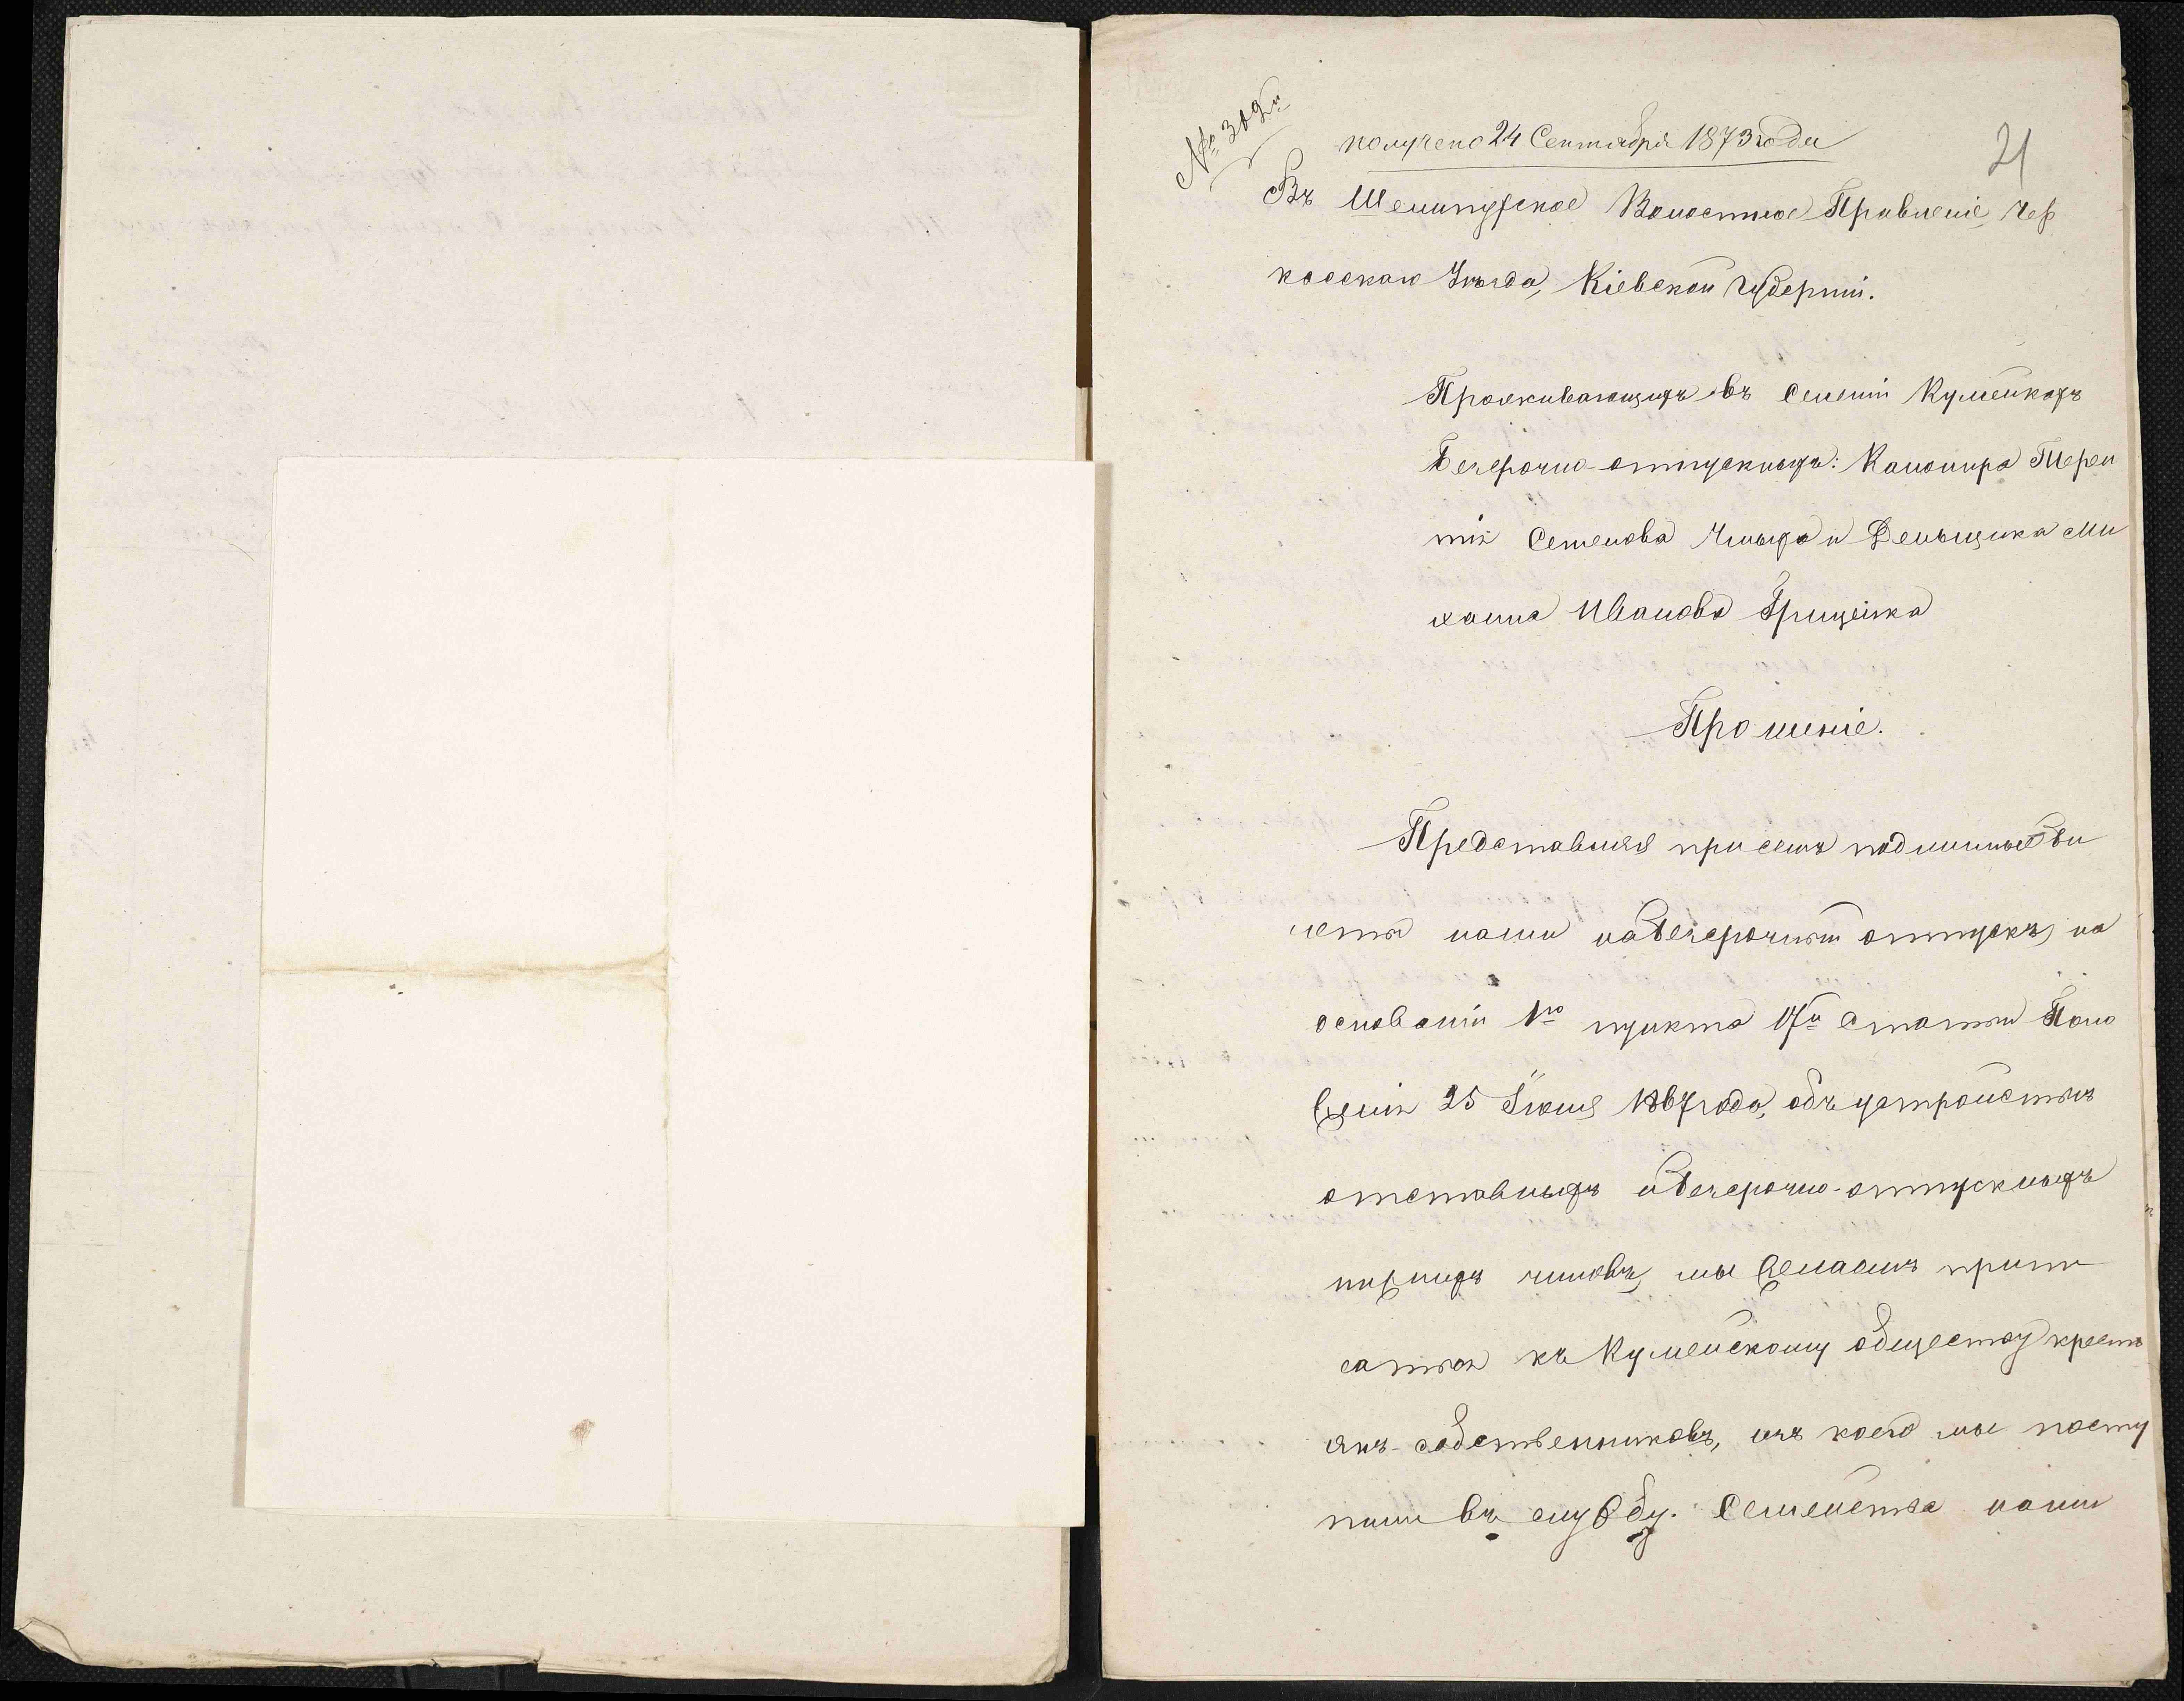 получено 24 Сентября 1873 года
21
Въ Шелипугское Волостное Правленіе, Чер
касскаго Уѣзда, Кіевской Губерніи.
Проживающихъ въ Селеніи Кумейкахъ
Безсрочно-отпускныхъ: Канонира Терен
тія Семенова и Деньщика Ми
хаила Иванова Гриценка
Прошеніе.
Представляя при семъ подлинные би
леты наши на безсрочный отпускъ, на
основаніи 1го пункта 17й Статьи Поло
женія 25 Іюня 1867 года, объ устройствѣ
отставныхъ и безсрочно-отпускныхъ
нижнихъ чиновъ, мы желаемъ припи
саться къ Кумейскому обществу кресть
янъ-собственниковъ, изъ коего мы посту
пили въ службу. Семейства наши